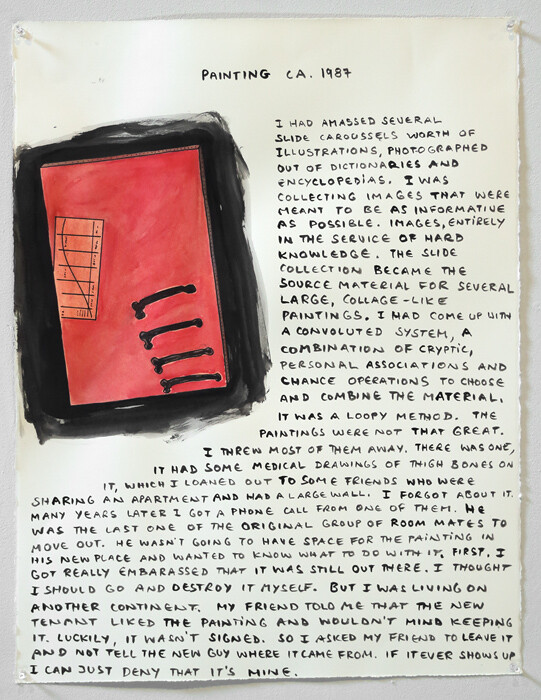 PAINTING CA. 1987
I HAD AMASSED SEVERAL
SLIDE CAROUSSELS WORTH OF
ILLUSTRATIONS, PHOTOGRAPHED
OUT OF DICTIONARIES AND
ENCYCLOPEDIAS. I WAS
COLLECTING IMAGES THAT WERE
MEANT TO BE AS INFORMATIVE
AS POSSIBLE. IMAGES, ENTIRELY
IN THE SERVICE OF HARD
KNOWLEDGE. THE SLIDE
COLLECTION BECAME THE
SOURCE MATERIAL FOR SEVERAL
LARGE, COLLAGE-LIKE
PAINTINGS. I HAD COME UP WITH
A CONVOLUTED SYSTEM, A
COMBINATION OF CRYPTIC,
PERSONAL ASSOCIATIONS AND
CHANCE OPERATIONS TO CHOOSE
AND COMBINE THE MATERIAL.
IT WAS A LOOPY METHOD. THE
PAINTINGS WERE NOT THAT GREAT.
I THREW MOST OF THEM AWAY. THERE WAS ONE,
IT HAD SOME MEDICAL DRAWINGS OF THIGH BONES ON
IT, WHICH I LOANED OUT TO SOME FRIENDS WHO WERE
SHARING AN APARTMENT AND HAD A LARGE WALL. I FORGOT ABOUT IT.
MANY YEARS LATER I GOT A PHONE CALL FROM ONE OF THEM. HE
WAS THE LAST ONE OF THE ORIGINAL GROUP OF ROOM MATES TO
MOVE OUT. HE WASN'T GOING TO HAVE SPACE FOR THE PAINTING IN
HIS NEW PLACE AND WANTED TO KNOW WHAT TO DO WITH IT. FIRST, I
GOT REALLY EMBARASSED THAT IT WAS STILL OUT THERE. I THOUGHT
I SHOULD GO AND DESTROY IT MYSELF. BUT I WAS LIVING ON
ANOTHER CONTINENT. MY FRIEND TOLD ME THAT THE NEW
TENANT LIKED THE PAINTING AND WOULDN'T MIND KEEPING
IT. LUCKILY, IT WASN'T SIGNED. SO I ASKED MY FRIEND TO LEAVE IT
AND NOT TELL THE NEW GUY WHERE IT CAME FROM. IF IT EVER SHOWS UP
I CAN JUST DENY THAT IT'S MINE.